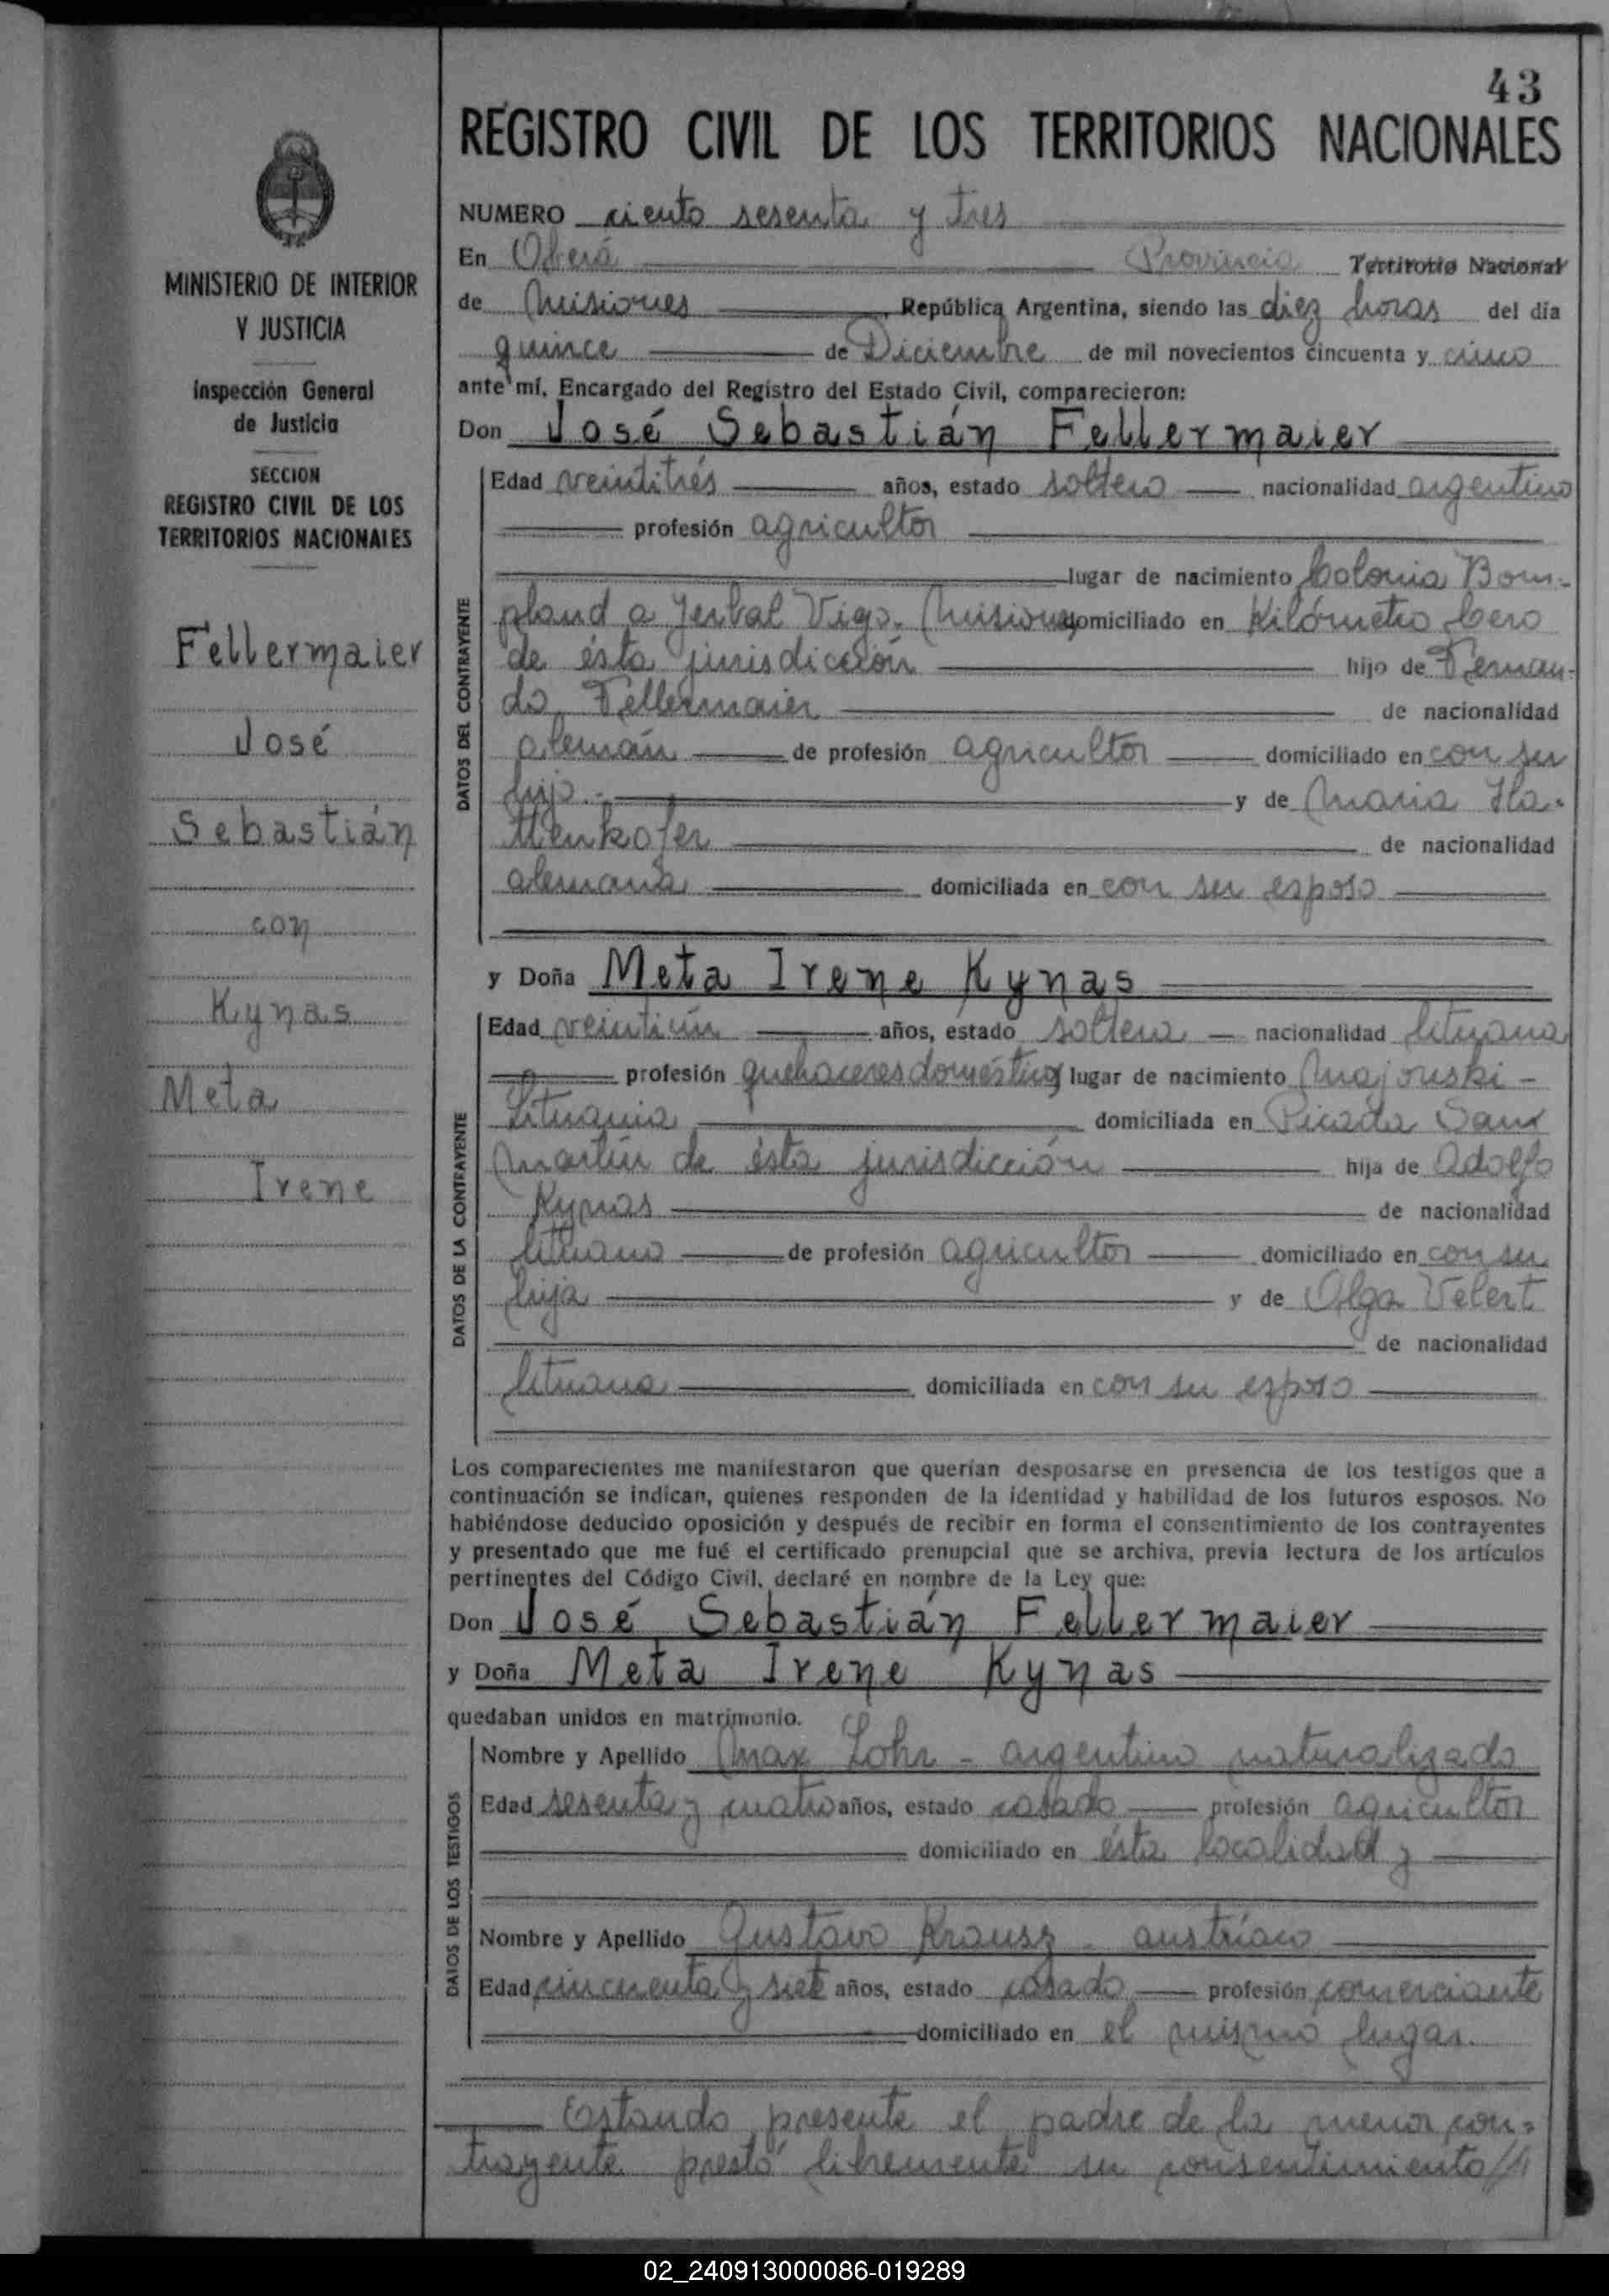 43
REGISTRO CIVIL DE LOS TERRITORIOS NACIONALES
MINISTERIO DE INTERIOR
Y JUSTICIA
Inspección General
de Justicia
SECCION
REGISTRO CIVIL DE LOS
TERRITORIOS NACIONALES
Fellermaier
José
Sebastián
con
Kynas
Meta
Irene
NUMERO ciento sesenta y tres
En Oberá Provincia Territorio Nacional
de Misiones, República Argentina, siendo las diez horas del día
quince de Diciembre de mil novecientos cincuenta y cinco
ante mí, Encargado del Registro del Estado Civil, comparecieron:
Don José Sebastián Fellermaier
DATOS DEL CONTRAYENTE
Edad veintitrés años, estado soltero nacionalidad argentino
profesión agricultor
lugar de nacimiento Colonia Bom-
pland a Yerbal Viejo. Misiones domiciliado en Kilómetro Cero
de ésta jurisdicción hijo de Fernan-
do Fellermaier de nacionalidad
alemán de profesión agricultor domiciliado en con su
hijo.- y de Maria Ha-
ttenkofer de nacionalidad
alemana domiciliada en con su esposo
y Doña Meta Irene Kynas
DATOS DE LA CONTRAYENTE
Edad veintiún años, estado soltera nacionalidad lituana
profesión quehaceres domésticos lugar de nacimiento Majouski -
Lituania domiciliada en Picada San
Martín de ésta jurisdicción hija de Adolfo
Kynas de nacionalidad
lituano de profesión agricultor domiciliado en con su
hija y de Olga Velert
de nacionalidad
lituana domiciliada en con su esposo
Los comparecientes me manifestaron que querían desposarse en presencia de los testigos que a
continuación se indican, quienes responden de la identidad y habilidad de los futuros esposos. No
habiéndose deducido oposición y después de recibir en forma el consentimiento de los contrayentes
y presentado que me fué el certificado prenupcial que se archiva, previa lectura de los artículos
pertinentes del Código Civil, declaré en nombre de la Ley que:
Don José Sebastián Fellermaier
y Doña Meta Irene Kynas
quedaban unidos en matrimonio.
DATOS DE LOS TESTIGOS
Nombre y Apellido Max Lohr - argentino naturalizado
Edad sesenta y cuatro años, estado casado profesión agricultor
domiciliado en ésta localidad y
Nombre y Apellido Gustavo Krausz - austríaco
Edad cincuenta y siete años, estado casado profesión comerciante
domiciliado en el mismo lugar.
Estando presente el padre de la menor con-
trayente prestó libremente su consentimiento//
02_240913000086-019289